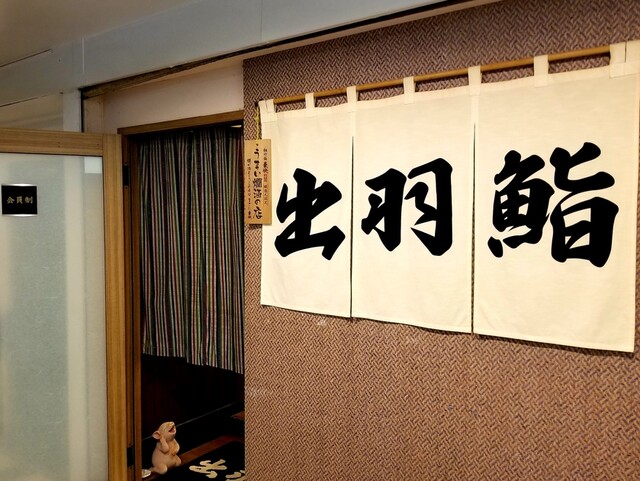 出羽鮨
うまい燗酒の店
会員制
出